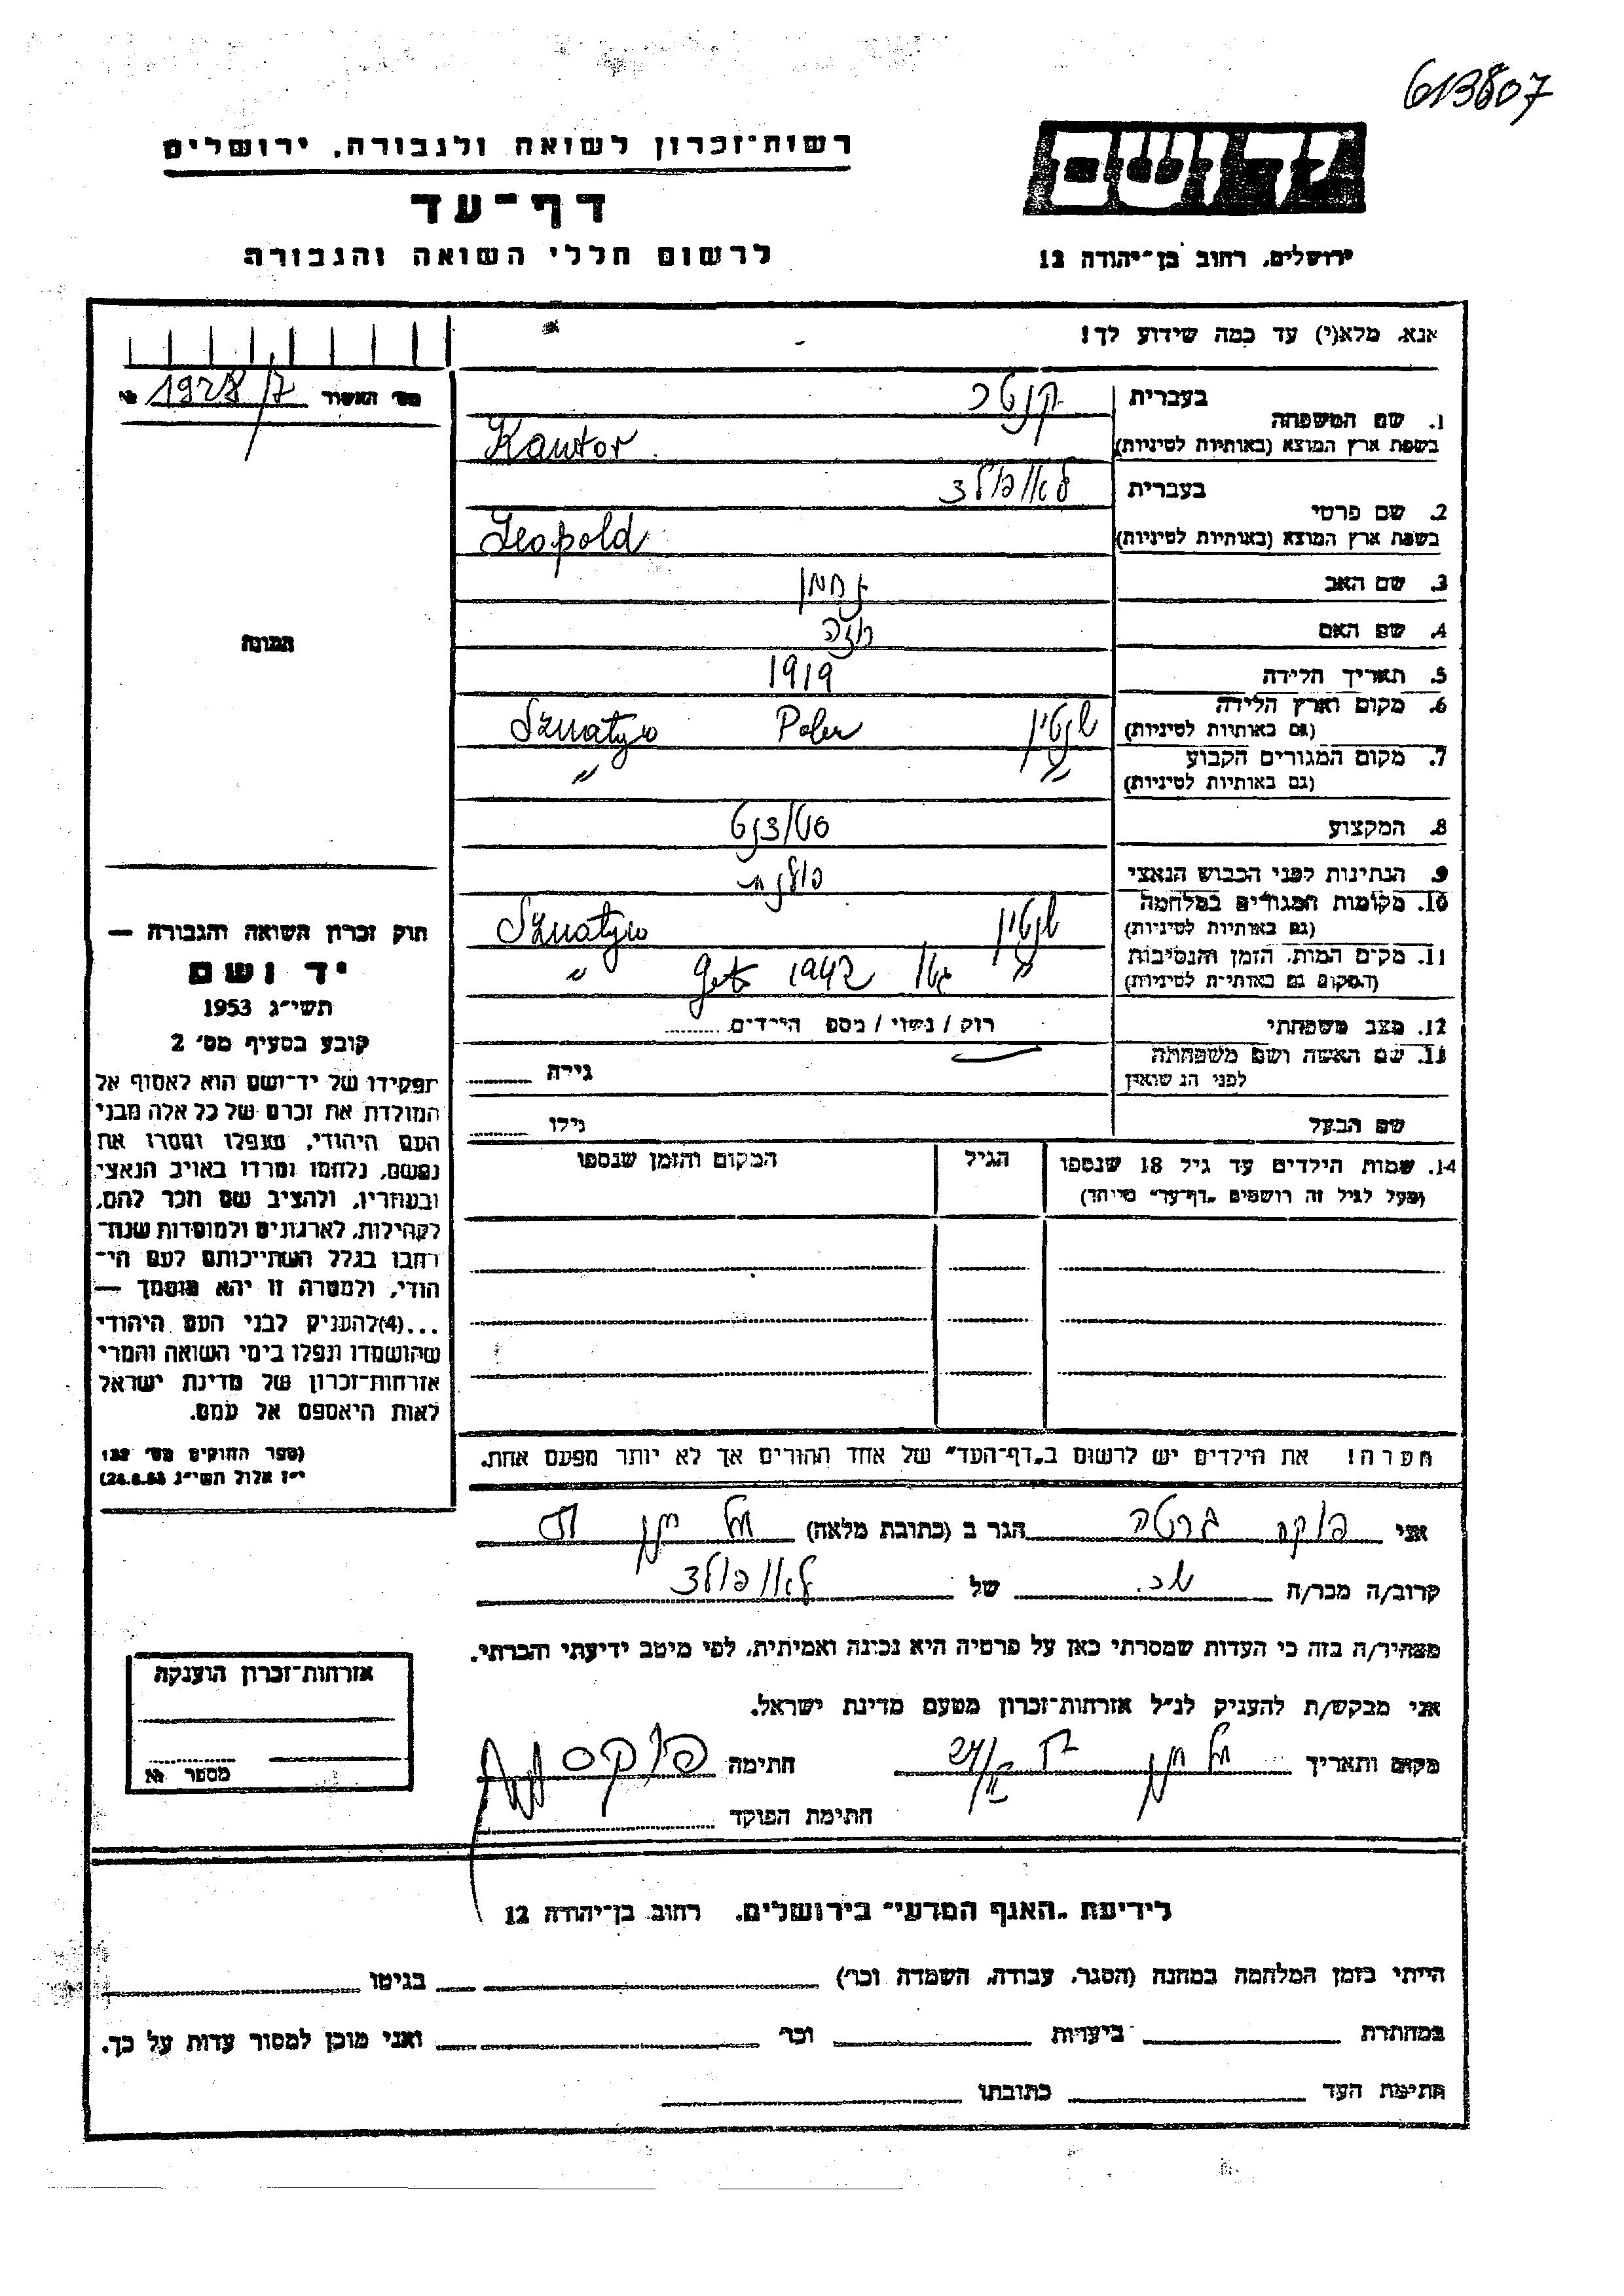 613807
רשות־זכרון לשואה ולגבורה, ירושלים
דף־עד
לרשום חללי השואה והגבורה
יד ושם
ירושלים, רחוב בן־יהודה 12
אנא, מלא(י) עד כמה שידוע לך!
1. שם המשפחה
בעברית קנטר
בשפת ארץ המוצא (באותיות לטיניות) Kantor
2. שם פרטי
בעברית לאופולד
בשפת ארץ המוצא (באותיות לטיניות) Leopold
3. שם האב נחמן
4. שם האם רוזה
5. תאריך הלידה 1919
6. מקום וארץ הלידה
(גם באותיות לטיניות) שנטין Polen Sznatyn
7. מקום המגורים הקבוע
(גם באותיות לטיניות) " "
8. המקצוע סטודנט
9. הנתינות לפני הכבוש הנאצי פולנית
10. מקומות המגורים במלחמה
(גם באותיות לטיניות) שנטין Sznatyn
11. מקום המות, הזמן והנסיבות
(המקום גם באותיות לטיניות) " גטו 1942 "
12. מצב משפחתי רווק / נשוי / מספר הילדים
13. שם האשה ושם משפחתה
לפני הנישואין גילה
שם הבעל גילו
14. שמות הילדים עד גיל 18 שנספו הגיל המקום והזמן שנספו
(מעל לגיל זה רושמים „דף־עד" מיוחד)
הערה! את הילדים יש לרשום ב„דף־העד" של אחד ההורים אך לא יותר מפעם אחת.
מס' האשור № 1928/7
תמונה
חוק זכרון השואה והגבורה —
יד ושם
תשי"ג 1953
קובע בסעיף מס' 2
תפקידו של יד־ושם הוא לאסוף אל
המולדת את זכרם של כל אלה מבני
העם היהודי, שנפלו ומסרו את
נפשם, נלחמו ומרדו באויב הנאצי
ובעוזריו, ולהציב שם וזכר להם,
לקהילות, לארגונים ולמוסדות שנח־
רבו בגלל השתייכותם לעם הי־
הודי, ולמטרה זו יהא מוסמך —
...(4)להעניק לבני העם היהודי
שהושמדו ונפלו בימי השואה והמרי
אזרחות־זכרון של מדינת ישראל
לאות היאספם אל עמם.
(ספר החוקים מס' 132
י"ז אלול תשי"ג 28.8.53)
אני פוקס ברטה הגר ב (כתובת מלאה)
קרוב/ה מכר/ה של לאופולד
מצהיר/ה בזה כי העדות שמסרתי כאן על פרטיה היא נכונה ואמיתית, לפי מיטב ידיעתי והכרתי.
אני מבקש/ת להעניק לנ"ל אזרחות־זכרון מטעם מדינת ישראל.
מקום ותאריך חתימה פוקס
חתימת הפוקד
אזרחות־זכרון הוענקה
מספר №
לידיעת „האגף המדעי" בירושלים, רחוב בן־יהודה 12
הייתי בזמן המלחמה במחנה (הסגר, עבודה, השמדה וכר') בגיטו
במחתרת ביערות וכר' ואני מוכן למסור עדות על כך.
חתימת העד כתובתו